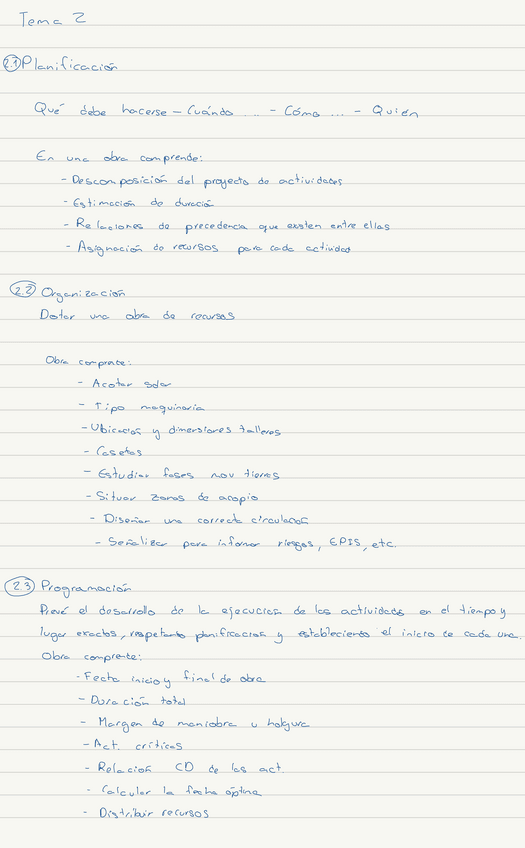 Tema 2
2.1 Planificación
Qué debe hacerse - Cuándo ... - Cómo ... - Quién
En una obra comprende:
- Descomposición del proyecto de actividades
- Estimación de duración
- Relaciones de precedencia que existen entre ellas
- Asignación de recursos para cada actividad
2.2 Organización
Dotar una obra de recursos
Obra comprende:
- Acotar solar
- Tipo maquinaria
- Ubicación y dimensiones talleres
- Casetas
- Estudiar fases mov tierras
- Situar zonas de acopio
- Diseñar una correcta circulación
- Señalizar para informar riesgos, EPIS, etc.
2.3 Programación
Prevé el desarrollo de la ejecución de las actividades en el tiempo y
lugar exactos, respetando planificación y estableciendo el inicio de cada una.
Obra comprende:
- Fecha inicio y final de obra
- Duración total
- Margen de maniobra u holgura
- Act. críticas
- Relación CD de las act.
- Calcular la fecha óptima
- Distribuir recursos